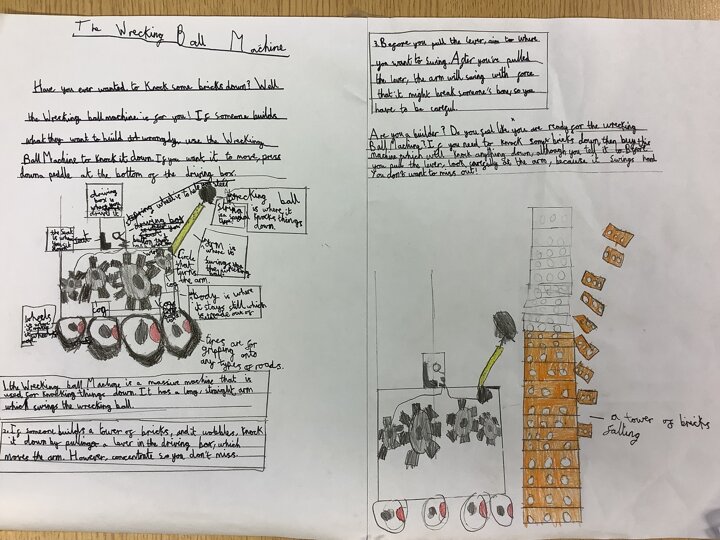 The Wrecking Ball Machine
Have you ever wanted to knock some bricks down? Well
the Wrecking ball machine is for you! If someone builds
what they want to build at wrongly, use the Wrecking
Ball Machine to knock it down. If you want it to move, press
down peddle at the bottom of the driving box.
driving box is
wrecking ball
is where it
knocks things
down.
String
the Seat is
Seat
ARM is
where it
Swings
Circle
that
turns
the arm.
body is where
it stays still, which
is
wheels
Cog
tyres are for
gripping onto
any types of roads.
1. the Wrecking ball Machine is a massive machine that is
used for knocking things down. It has a long, straight arm
which swings the wrecking ball
2. If someone builds a tower of bricks, and it wobbles, knock
it down by a lever in the driving box, which
moves the arm. However, concentrate so you don't miss.
3. Before you pull the lever, aim for where
you want to swing. After you've pulled
the lever, the arm will swing with force
that it might break someone's box, so you
have to be careful.
Are you a builder? Do you feel like you are ready for the wrecking
Ball Machine? If you need to knock some bricks down, then buy this
machine which will knock anything down, although you tell it to. Before
you pull the lever, look carefully at the arm, because it swings hard
You don't want to miss out!
a tower of bricks
falling